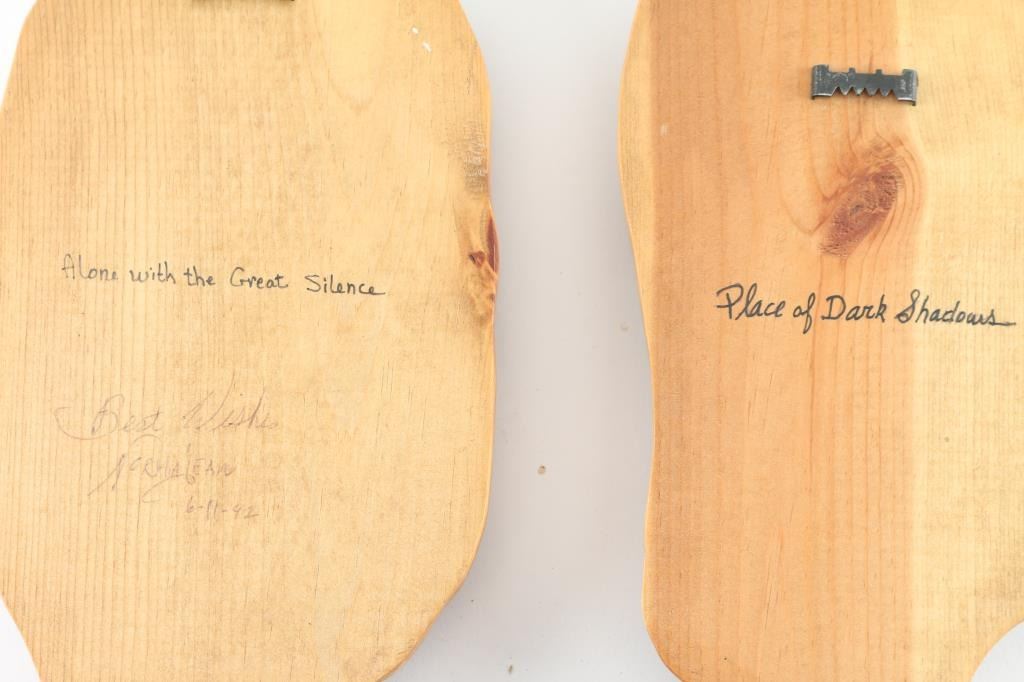 Alone with the Great Silence
Best Wishes
Norma Jean
6-11-92
Place of Dark Shadows